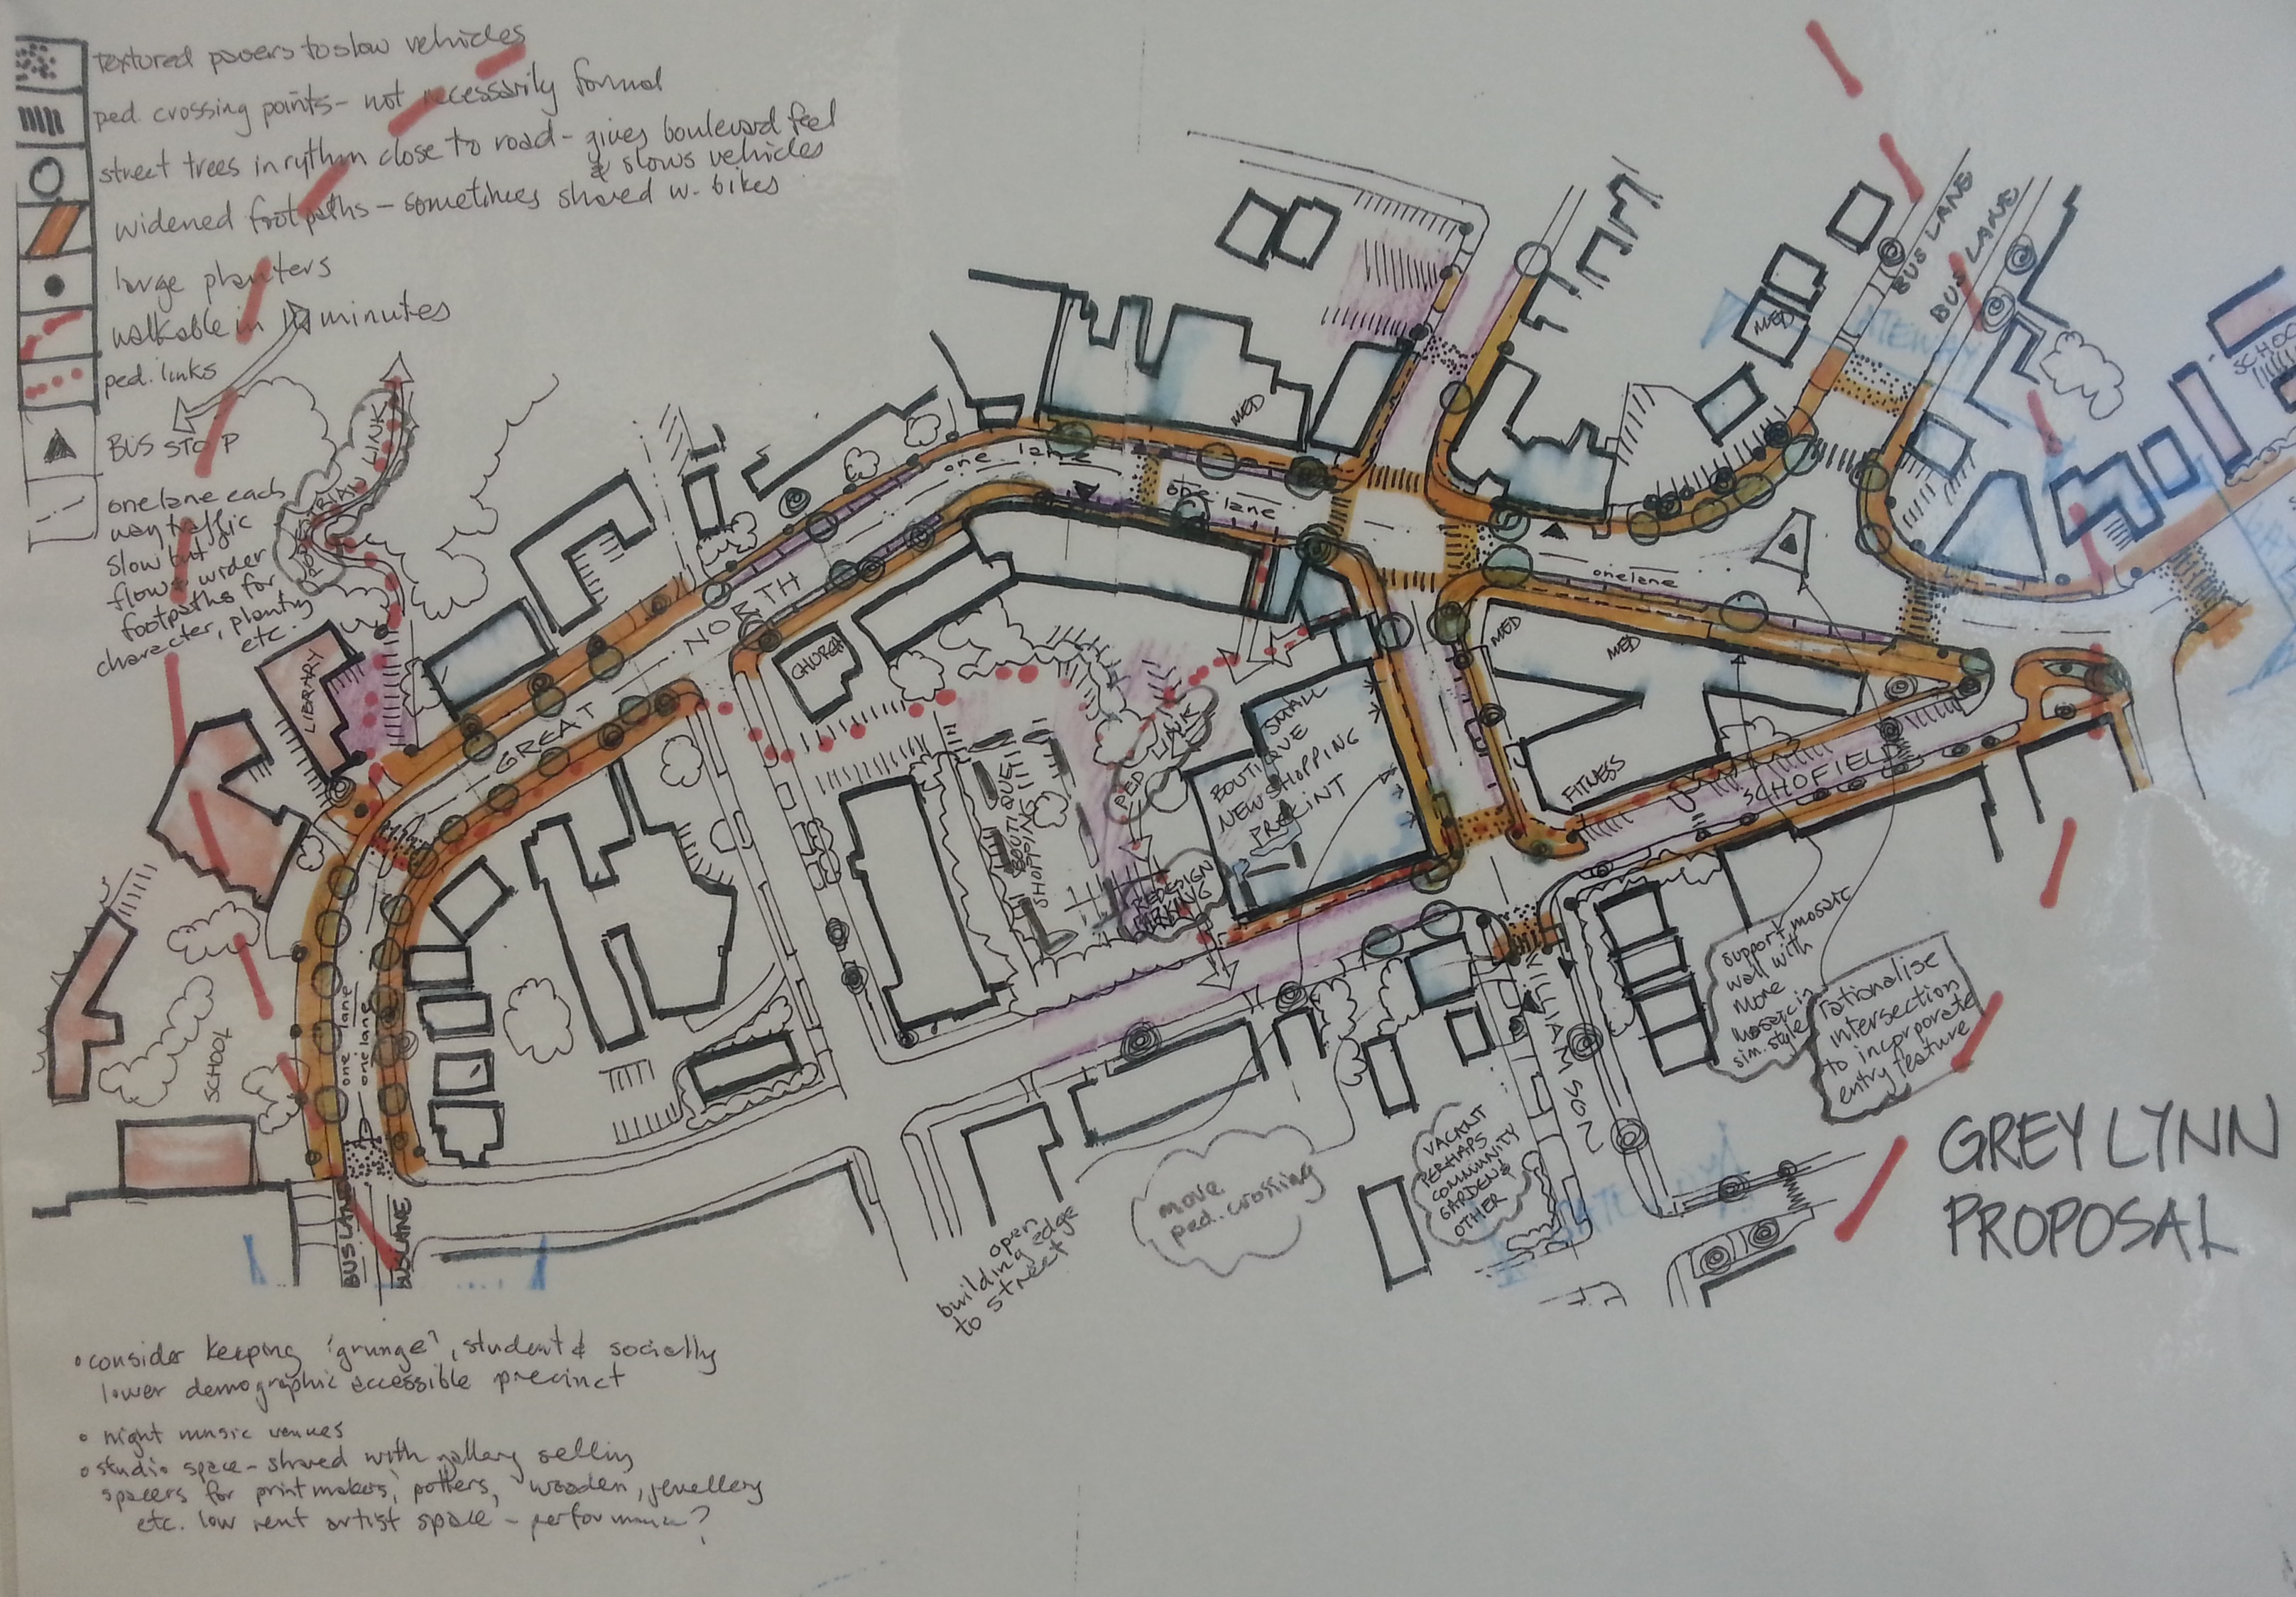 textured pavers to slow vehicles
ped. crossing points - not necessarily formal
street trees in rythm close to road - gives boulevard feel
& slows vehicles
widened footpaths - sometimes shared w. bikes
large planters
walkable in 10 minutes
ped. links
BUS STOP
one lane each
way traffic
slow but
flows, wider
footpaths for
character, planting
etc.
PEDESTRIAN LINK
LIBRARY
SCHOOL
GREAT NORTH
CHURCH
one lane
one lane
one lane
one lane
one lane
MED
MED
MED
MED
BUS LANE
BUS LANE
GATEWAY
SCHOOL
BOUTIQUE
SHOPPING
PED LINK
REDESIGN
PARKING
SMALL
BOUTIQUE
NEW SHOPPING
PRECINT
FITNESS
SCHOFIELD
WILLIAMSON
support mosaic
wall with
more
mosaic in
sim. style
rationalise
intersection
to incorporate
entry feature
VACANT
PERHAPS
COMMUNITY
GARDEN &
OTHER
move
ped. crossing
open
building edge
to street
BUS LANE
BUS LANE
GREY LYNN
PROPOSAL
• consider keeping 'grunge', student & socially
lower demographic accessible precinct
• night music venues
• studio space - shared with gallery selling
spacers for printmakers, potters, wooden, jewellery
etc. low rent artist space - performance?